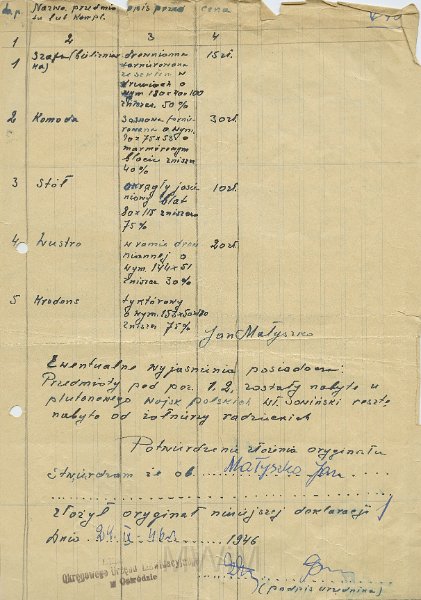 L.p. Nazwa przedmio opis przed cena
tu lub kompl.
1 2 3 4
1 Szafa (bieliźniar drewnianna 15 zł.
ka) fornirowana
ze serkm w
drzwiach o
wym 180x40x100
zniszcz. 50%
2 Komoda sosnowa forni 30 zł.
rowana o wym.
90x75x55 o
marmórowym
blacie znisz
40%
3 Stół okrągły jasie 10 zł.
niowy blat
80x115 zniszcz
75%
4 Lustro w ramie drew 20 zł.
niannej o
wym. 144x51
zniszcz 30%
5 Kredens dyktórowy
o wym. 153x50x80
znisz 75%
Jan Małyszko
Ewentualne wyjaśnienia posiadacza:
Przedmioty pod poz. 1.2. zostały nabyte u
plutonowego wojsk polskich wł. Soniński resztę
nabyto od żołnierzy radzieckich
Potwierdzenie złożenia oryginału
stwierdzam że ob. Małyszko Jan
złożył oryginał niniejszej deklaracji
dnia 24 IX 1946
Okręgowego Urzęd Likwidacyjn
w Ostródzie
(podpis urzędnika)